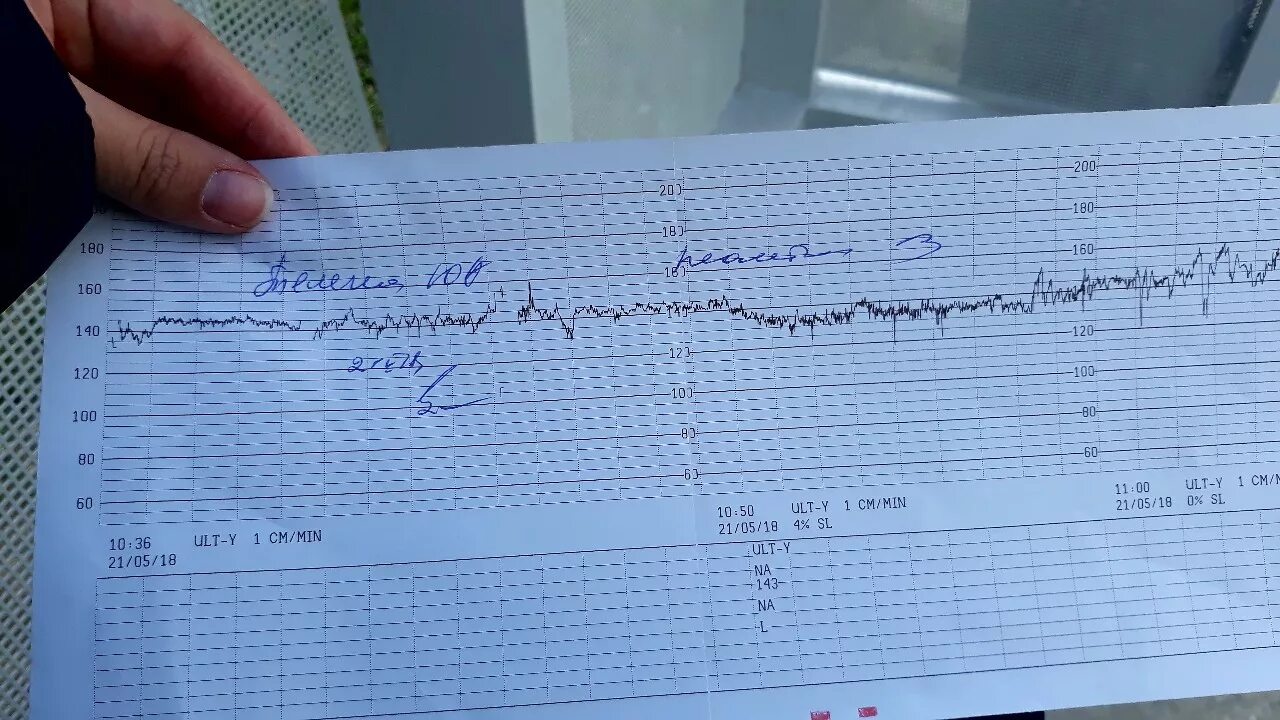 200 200
180 180 180
160 160
140
120 120 120
100 100 100
80 80 80
60 60 60
10:36 ULT-Y 1 CM/MIN
21/05/18
10:50 ULT-Y 1 CM/MIN
21/05/18 4% SL
11:00 ULT-Y 1 CM/M
21/05/18 0% SL
ULT-Y
NA
143
NA
L
3
2